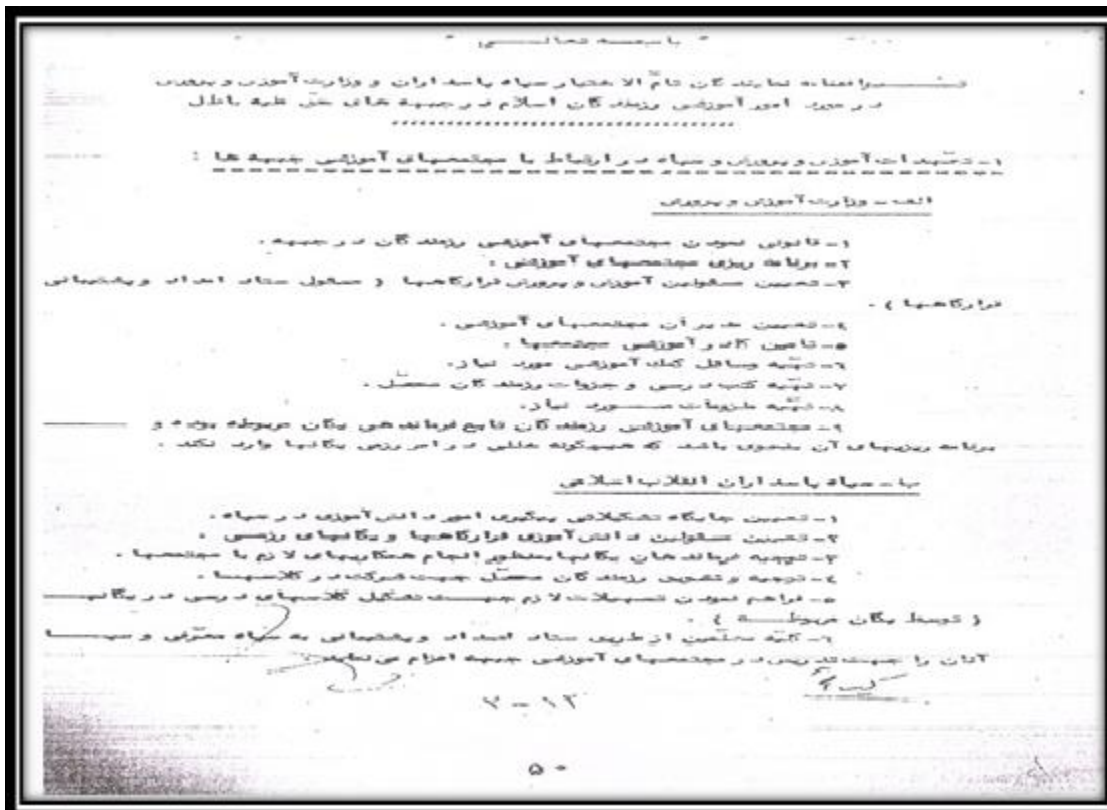 " باسمه تعالـــی "
تفـــــــاهمنامه نمایندگان تامّ الاختیار سپاه پاسداران و وزارت آموزش و پرورش
در مورد امور آموزشی رزمندگان اسلام در جبهه های حق علیه باطل
۱- تعهدات آموزش و پرورش و سپاه در ارتباط با مجتمعهای آموزشی جبهه ها :
الف - وزارت آموزش و پرورش
۱- قانونی نمودن مجتمعهای آموزشی رزمندگان در جبهه .
۲- برنامه ریزی مجتمعهای آموزشی .
۳- تعیین مسئولین آموزش و پرورش قرارگاهها ( مسئول ستاد امداد و پشتیبانی
قرارگاهها ) .
٤- تعیین مدیران مجتمعهای آموزشی .
۵- تامین کادر آموزشی مجتمعها .
٦- تهیّه وسائل کمک آموزشی مورد نیاز .
۷- تهیّه کتب درسی و جزوات رزمندگان محصّل .
۸- تهیّه ملزومات مـــورد نیاز .
۹- مجتمعهای آموزشی رزمندگان تابع فرماندهی یگان مربوطه بوده و
برنامه ریزیهای آن بنحوی باشد که هیچگونه خللی در امر رزمی یگانها وارد نکند .
ب - سپاه پاسداران انقلاب اسلامی
۱- تعیین جایگاه تشکیلاتی پیگیری امور دانش آموزی در سپاه .
۲- تعیین مسئولین دانش آموزی قرارگاهها و یگانهای رزمـی .
۳- توجیه فرماندهان یگانها بمنظور انجام همکاریهای لازم با مجتمعها .
٤- توجیه و تشویق رزمندگان محصّل جهت شرکت در کلاسهـا .
۵- فراهم نمودن تسهیلات لازم جهـــت تشکیل کلاسهای درسی در یگانهـــــا
( توسط یگان مربوطـــه ) .
٦- کلیّه معلّمین از طریق ستاد امـداد و پشتیبانی به سپاه معرّفی و سپـــاه
آنان را جهت تدریس در مجتمعهای آموزشی جبهه اعزام می نماید .
۱۲ - ۲
۵۰